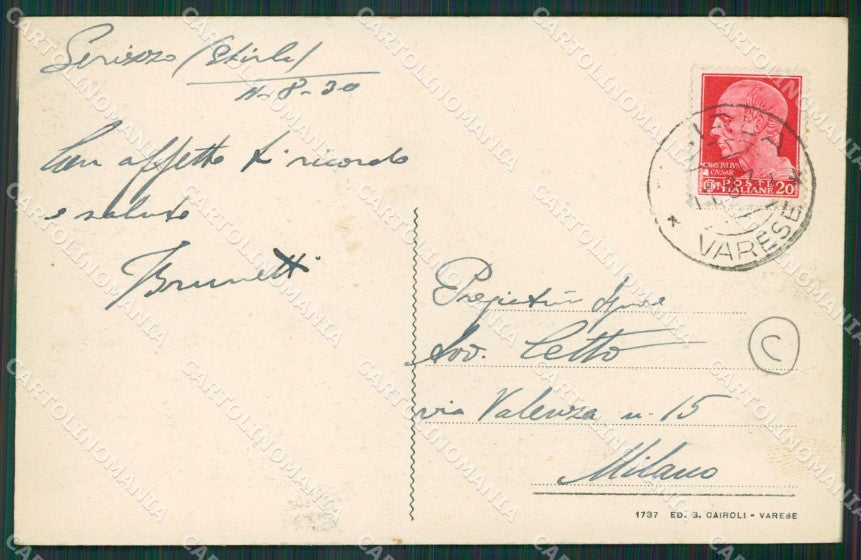 11-8-30
Con affetto ti ricordo
e saluto
Brunetti
CAIVS IVLIVS
CAESAR
POSTE
ITALIANE 20
VARESE
Avv. Cetto
via Valenza n. 15
Milano
C
1737 ED. G. CAIROLI - VARESE
CARTOLINOMANIA